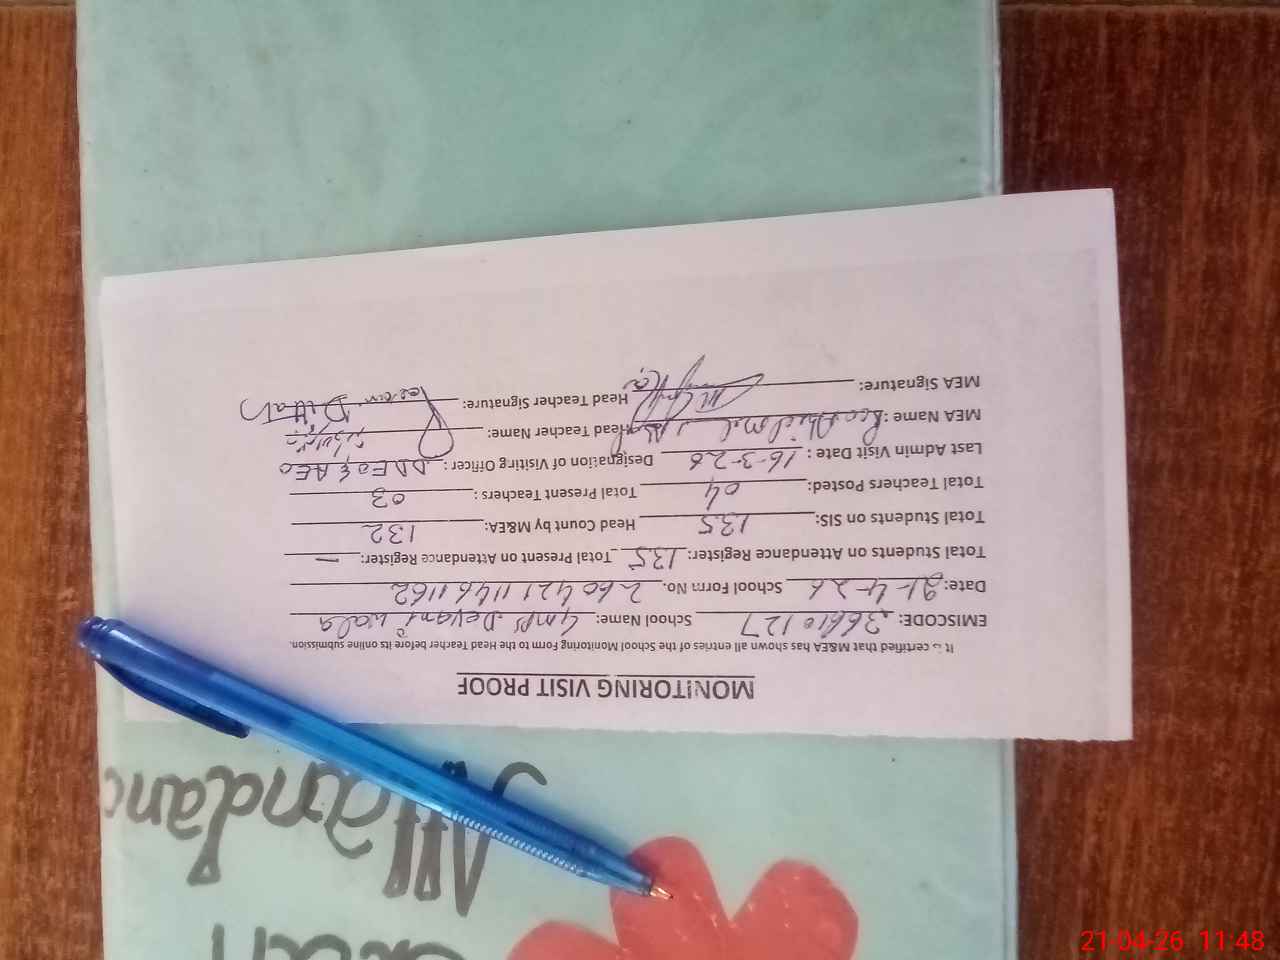 MONITORING VISIT PROOF
It is certified that M&EA has shown all entries of the School Monitoring Form to the Head Teacher before its online submission.
EMISCODE: 36610127 School Name: GMPS Devani wala
Date: 21-4-26 School Form No. 26042111461162
Total Students on Attendance Register: 135 Total Present on Attendance Register: —
Total Students on SIS: 135 Head Count by M&EA: 132
Total Teachers Posted: 04 Total Present Teachers : 03
Last Admin Visit Date : 16-3-26 Designation of Visiting Officer : DDEO & AEO
MEA Name : Head Teacher Name:
MEA Signature: Head Teacher Signature:
21-04-26 11:48